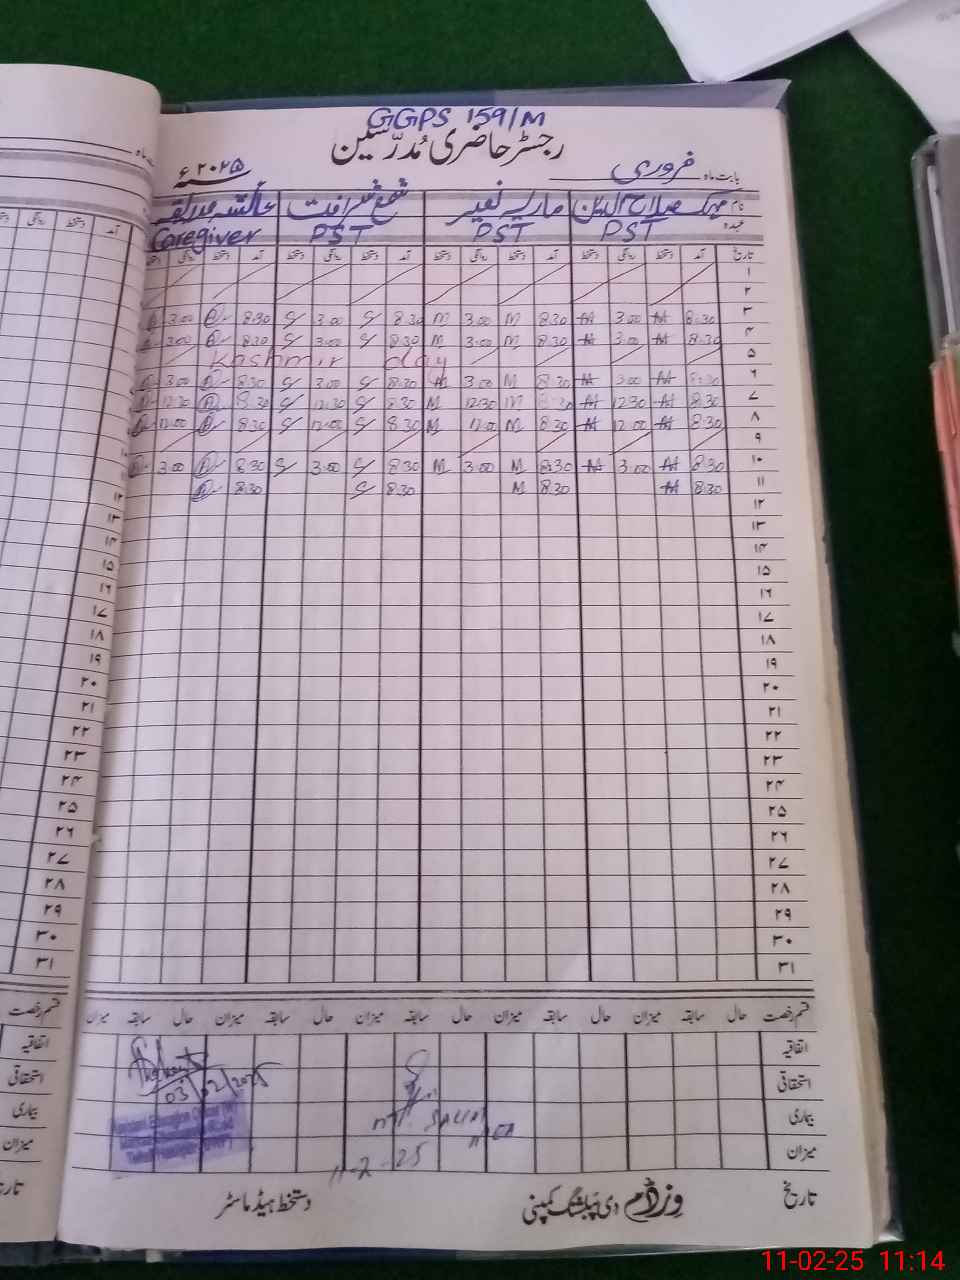 GGPS 159/M
رجسٹر حاضری مُدرّسین
بابت ماہ فروری ۲۰۲۵ء
نام مہک صلاح الدین ماریہ نصیر شمع شرافت عائشہ صدیقہ
عہدہ PST PST PST Caregiver
تاریخ آمد دستخط روانگی دستخط آمد دستخط روانگی دستخط آمد دستخط روانگی دستخط آمد دستخط روانگی دستخط
۱
۲
۳ 8:30 M 3:00 M 8:30 M 3:00 M 8:30 S 3:00 S 8:30 A 3:00 A
۴ 8:30 M 3:00 M 8:30 M 3:00 M 8:30 S 3:00 S 8:30 A 3:00 A
۵ Kashmir day
۶ 8:30 M 3:00 M 8:30 M 3:00 M 8:30 S 3:00 S 8:30 A 3:00 A
۷ 8:30 M 12:30 M 8:30 M 12:30 M 8:30 S 12:30 S 8:30 A 12:30 A
۸ 8:30 M 12:00 M 8:30 M 12:00 M 8:30 S 12:00 S 8:30 A 12:00 A
۹
۱۰ 8:30 M 3:00 M 8:30 M 3:00 M 8:30 S 3:00 S 8:30 A 3:00 A
۱۱ 8:30 M 8:30 M 8:30 S 8:30 A
۱۲
۱۳
۱۴
۱۵
۱۶
۱۷
۱۸
۱۹
۲۰
۲۱
۲۲
۲۳
۲۴
۲۵
۲۶
۲۷
۲۸
۲۹
۳۰
۳۱
قسم رخصت حال سابقہ میزان حال سابقہ میزان حال سابقہ میزان حال سابقہ میزان
اتفاقیہ
استحقاقی
بیماری
میزان
03/02/2025
11-2-25
تاریخ وزڈم دی پبلشنگ کمپنی دستخط ہیڈ ماسٹر
11-02-25 11:14